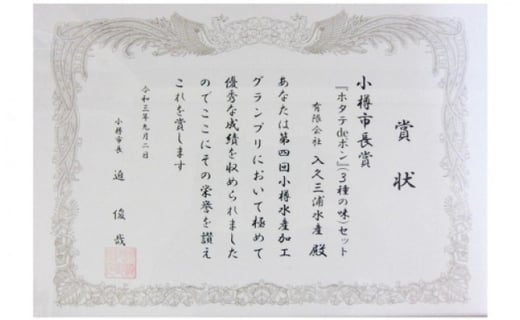 賞状
小樽市長賞
『ホタテdeボン』(3種の味)セット
有限会社 入久三浦水産 殿
あなたは第四回小樽水産加工
グランプリにおいて極めて
優秀な成績を収められました
のでここにその栄誉を讃え
これを賞します
令和三年九月二日
小樽市長 迫 俊哉